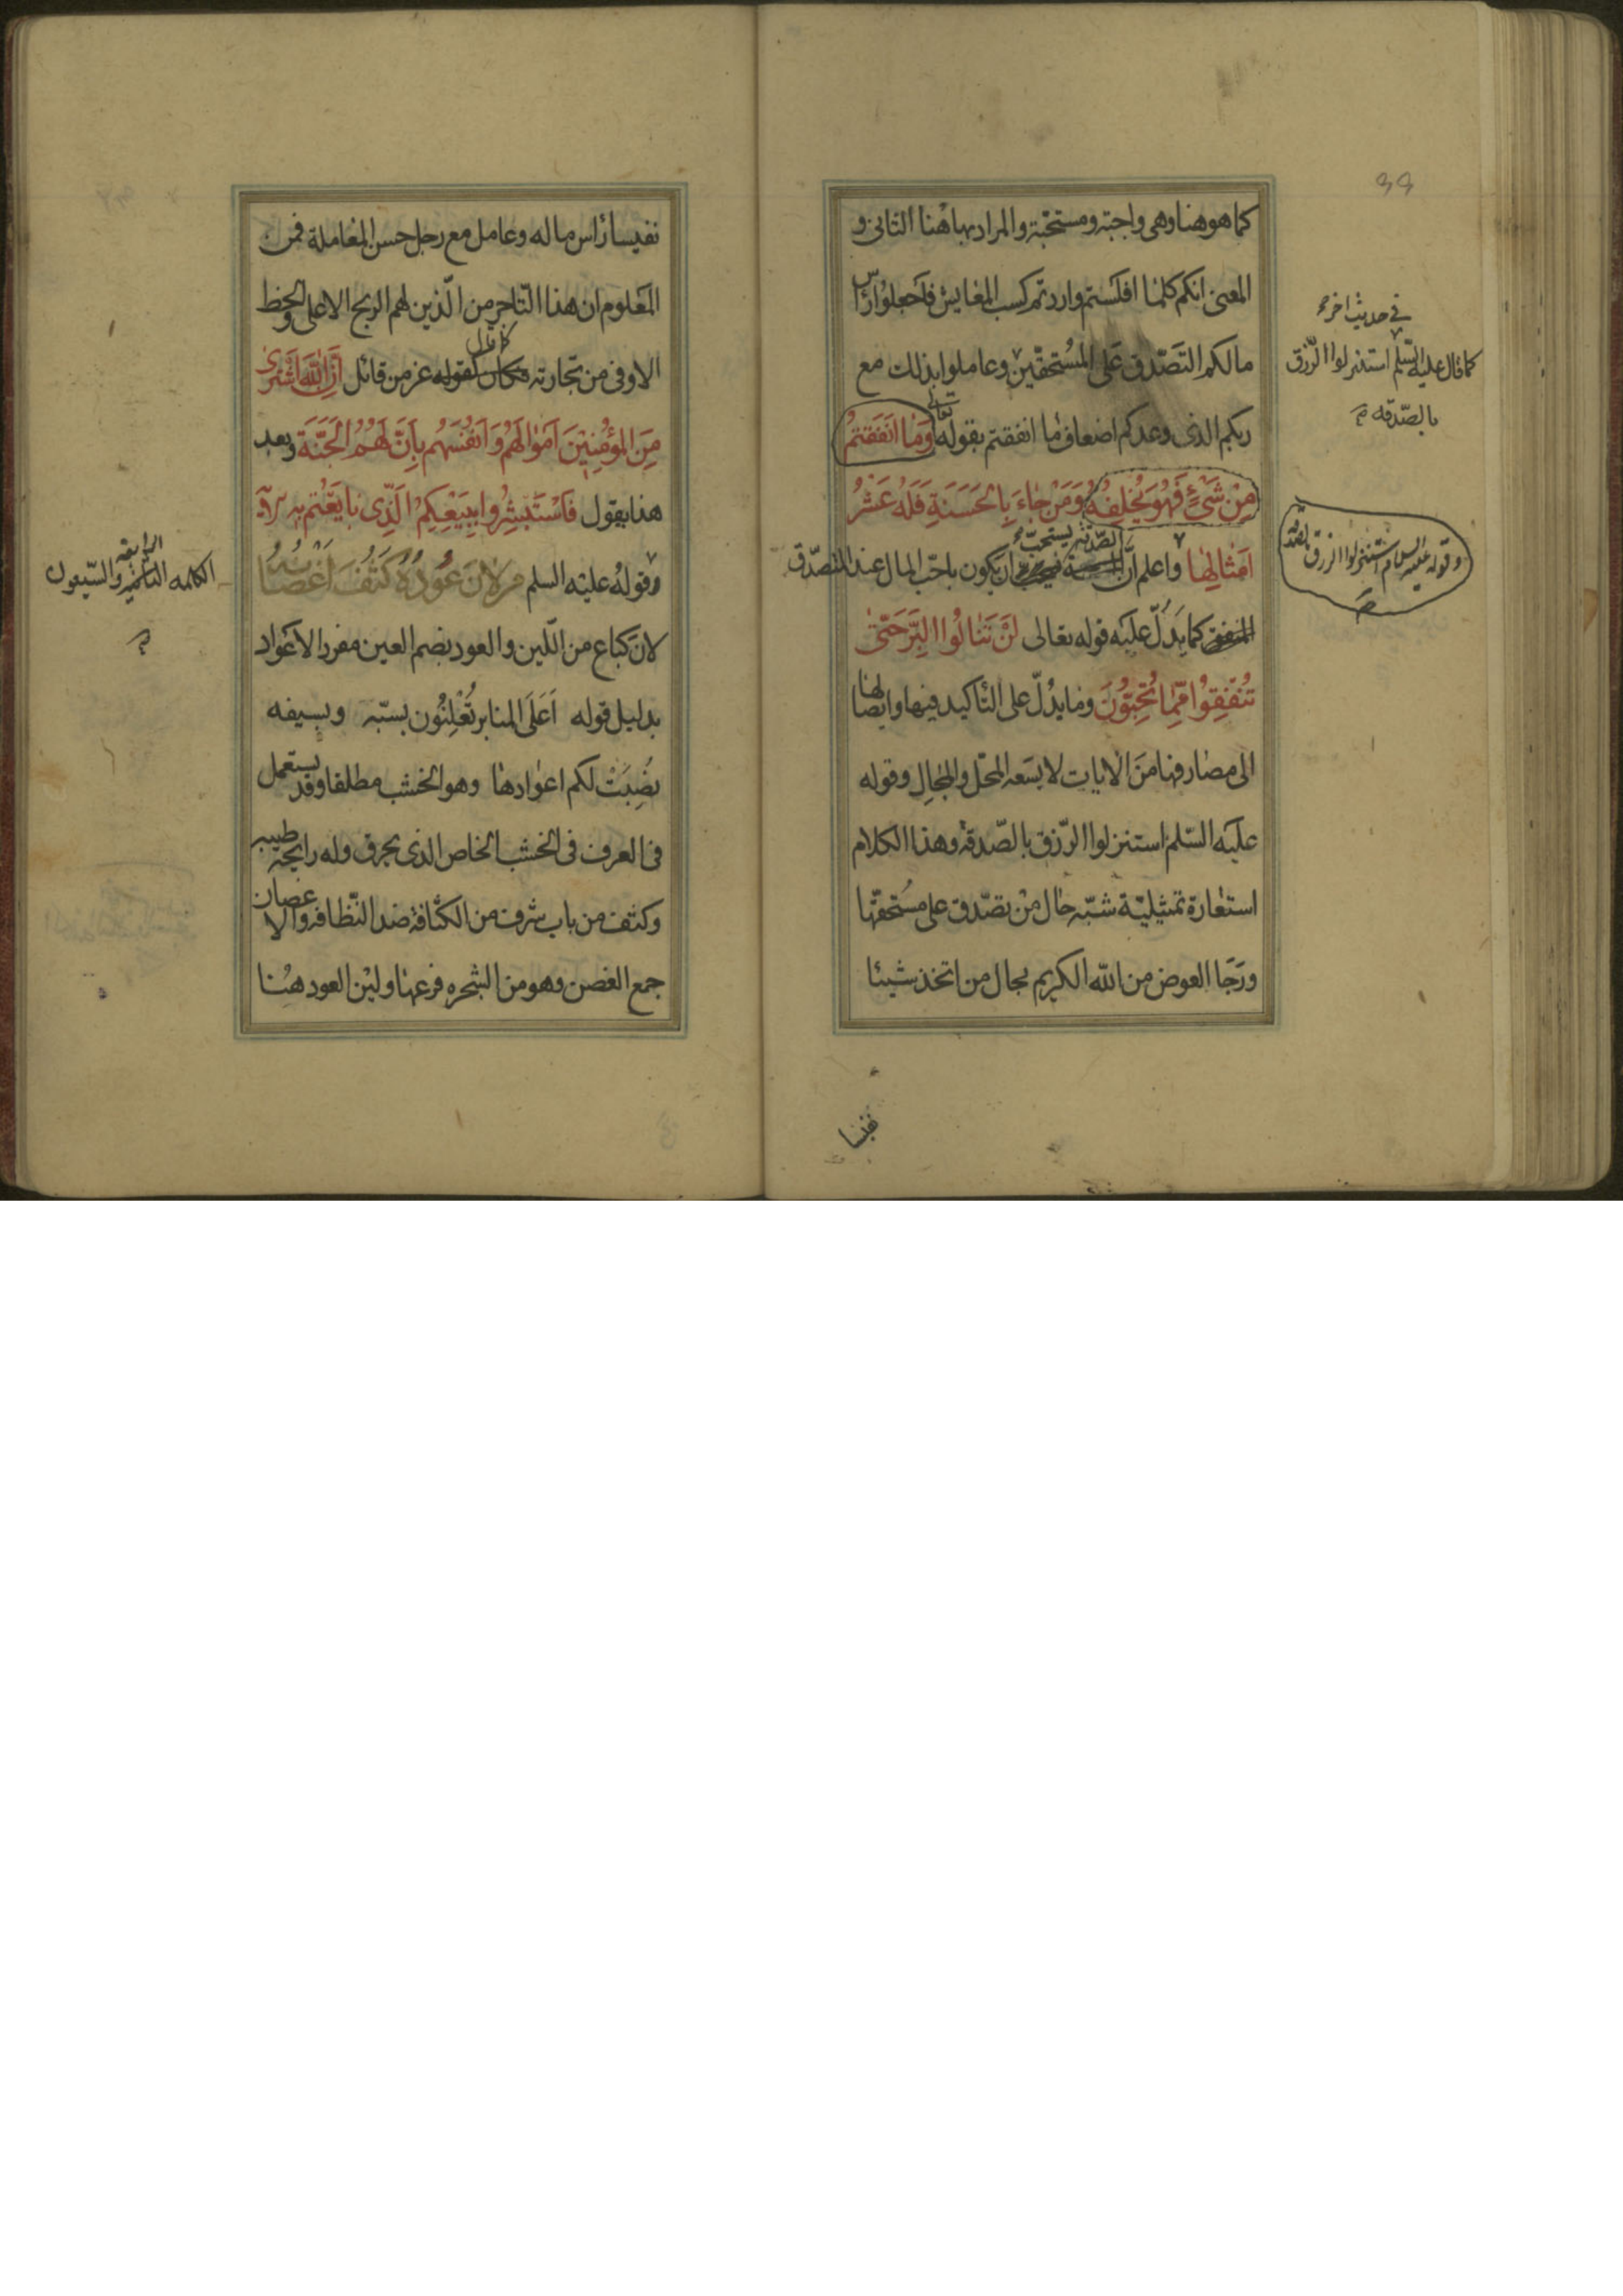 كما هو هنا وهى واجبة ومستحبّة والمراد بها هٰنا الثانى و
المعنى انكم كلمٰا افلستم واردتم كسب المعٰايش فاجعلوا رأس
مالكم التَصّدق عَلى المُستحقّين وعاملوا بذلك مع
ربكم الذى وعدكم اضعاف مٰا انفقتم بقوله تعالى وَمٰا اَنفَقتُمْ
مِنْ شَيْءٍ فَهُوَ يُخْلِفُهُ وَمَنْ جٰاءَ بِالْحَسَنَةِ فَلَهُ عَشْرُ
اَمْثالِهٰا واعلم انّ الصّدقة يستحبّ ان يكون باحبّ المال عند المتصدّق
كما يَدُلّ عليَه قوله تعالى لَنْ تَنٰالُوا الْبِرَّ حَتّىٰ
تُنْفِقُوا مِمّٰا تُحِبّوُنَ ومٰا يدُلّ على التّأكيد فيها وايصٰالهٰا
الى مصٰارفهٰا منَ الٰايات لا يسَعه المحّل والمجٰالِ وقوله
عليَه السّلم استنزلوا الرّزق بالصّدقة وهذا الكلام
استعٰارة تمثيليّة شبّه حٰال منْ تصّدق على مسُتحقّها
ورَجَا العوض من اللّه الكريم بحال من اتخذ شيئا
نفيسا رٔاس ماله وعامل مع رجل حسن المعٰاملة فمن
المَعلوم ان هذا التّاجر من الّذين لهم الربح الاعلى والحظ
الاوفى من تجّارته كما قال عز من قائل اِنَّ اللّٰهَ اشْتَرىٰ
مِنَ المؤْمِنيْنَ اَمْوٰالَهُمْ وَاَنفُسَهُم بِاَنَّ لَهُمُ الْجَنَّةَ وبعد
هذا يقول فَاسْتَبْشِرُوا بِبَيْعِكِمُ الَذِّى بٰايَعْتُم بِهِ
وقولهُ عليَه السلم مَن لانَ عُودُهُ كَثُفَ اَغْصٰانُهُ
لانَ كباع من اللّين والعود بضم العين مفرد الاَعْواد
بدليل قوله اَعَلَى المنابر تُعْلِنُون بسبّه وبسِيفه
نصُِبَتْ لكم اعوٰادهٰا وهو الخشب مطلقا وقد يستعمل
فى العرف فى الخشب الخاص الذى يحرق وله رايحة طيبه
وكثف من باب شرف من الكثافة ضد النّظافه والاغصان
جمع الغصن وهو من الشجره فرعهٰا ولين العود هُنٰا
في حديث اخر
كما قال عليه السّلم استنزلوا الرّزق
بالصّدقه
وقوله عليه السلام استنزلوا الرزق بالصدقة
نفيسا
الرابعة
الكلمه الثامنه والسّبعون